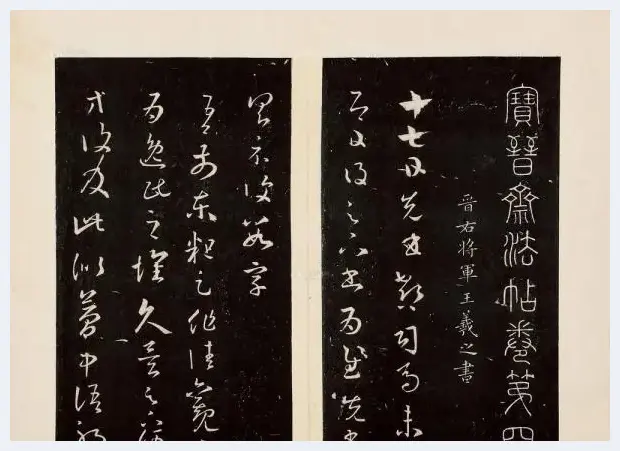 寶晉齋法帖卷第四
晉右將軍王羲之書
十七日先書郗司馬未
即日得足下書為慰先書
具示復數字
吾前東粗足作佳觀
為逸民之懷久矣足下何
方復及此似夢中語耶